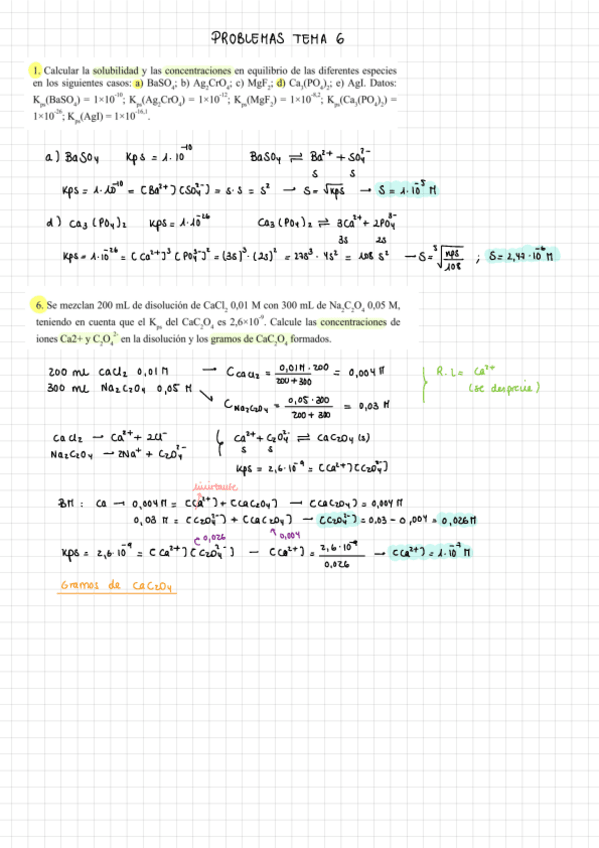 PROBLEMAS TEMA 6
1. Calcular la solubilidad y las concentraciones en equilibrio de las diferentes especies
en los siguientes casos: a) BaSO₄; b) Ag₂CrO₄; c) MgF₂; d) Ca₃(PO₄)₂; e) AgI. Datos:
Kₚₛ(BaSO₄) = 1×10⁻¹⁰; Kₚₛ(Ag₂CrO₄) = 1×10⁻¹²; Kₚₛ(MgF₂) = 1×10⁻⁸·²; Kₚₛ(Ca₃(PO₄)₂) =
1×10⁻²⁶; Kₚₛ(AgI) = 1×10⁻¹⁶·¹.
a) BaSO₄ Kps = 1·10⁻¹⁰ BaSO₄ ⇌ Ba²⁺ + SO₄²⁻
s s
Kps = 1·10⁻¹⁰ = [Ba²⁺][SO₄²⁻] = s·s = s² → S = √Kps → S = 1·10⁻⁵ M
d) Ca₃(PO₄)₂ Kps = 1·10⁻²⁶ Ca₃(PO₄)₂ ⇌ 3Ca²⁺ + 2PO₄³⁻
3s 2s
Kps = 1·10⁻²⁶ = [Ca²⁺]³ [PO₄³⁻]² = (3s)³·(2s)² = 27s³·4s² = 108 s⁵ → S = ⁵√(Kps/108) ; S = 2,47·10⁻⁶ M
6. Se mezclan 200 mL de disolución de CaCl₂ 0,01 M con 300 mL de Na₂C₂O₄ 0,05 M,
teniendo en cuenta que el Kₚₛ del CaC₂O₄ es 2,6×10⁻⁹. Calcule las concentraciones de
iones Ca2+ y C₂O₄²⁻ en la disolución y los gramos de CaC₂O₄ formados.
200 mL CaCl₂ 0,01 M → C CaCl₂ = 0,01M·200 / 200+300 = 0,004 M R.L = Ca²⁺
300 mL Na₂C₂O₄ 0,05 M → C Na₂C₂O₄ = 0,05·300 / 200+300 = 0,03 M (se desprecia)
CaCl₂ → Ca²⁺ + 2Cl⁻ Ca²⁺ + C₂O₄²⁻ ⇌ CaC₂O₄ (s)
s s
Na₂C₂O₄ → 2Na⁺ + C₂O₄²⁻ Kps = 2,6·10⁻⁹ = [Ca²⁺][C₂O₄²⁻]
BM: Ca → 0,004 M = [Ca²⁺] + [CaC₂O₄] → [CaC₂O₄] = 0,004 M
0,03 M = [C₂O₄²⁻] + [CaC₂O₄] → [C₂O₄²⁻] = 0,03 - 0,004 = 0,026 M
0,026 0,004
Kps = 2,6·10⁻⁹ = [Ca²⁺][C₂O₄²⁻] → [Ca²⁺] = 2,6·10⁻⁹ / 0,026 → [Ca²⁺] = 1·10⁻⁷ M
Gramos de CaC₂O₄